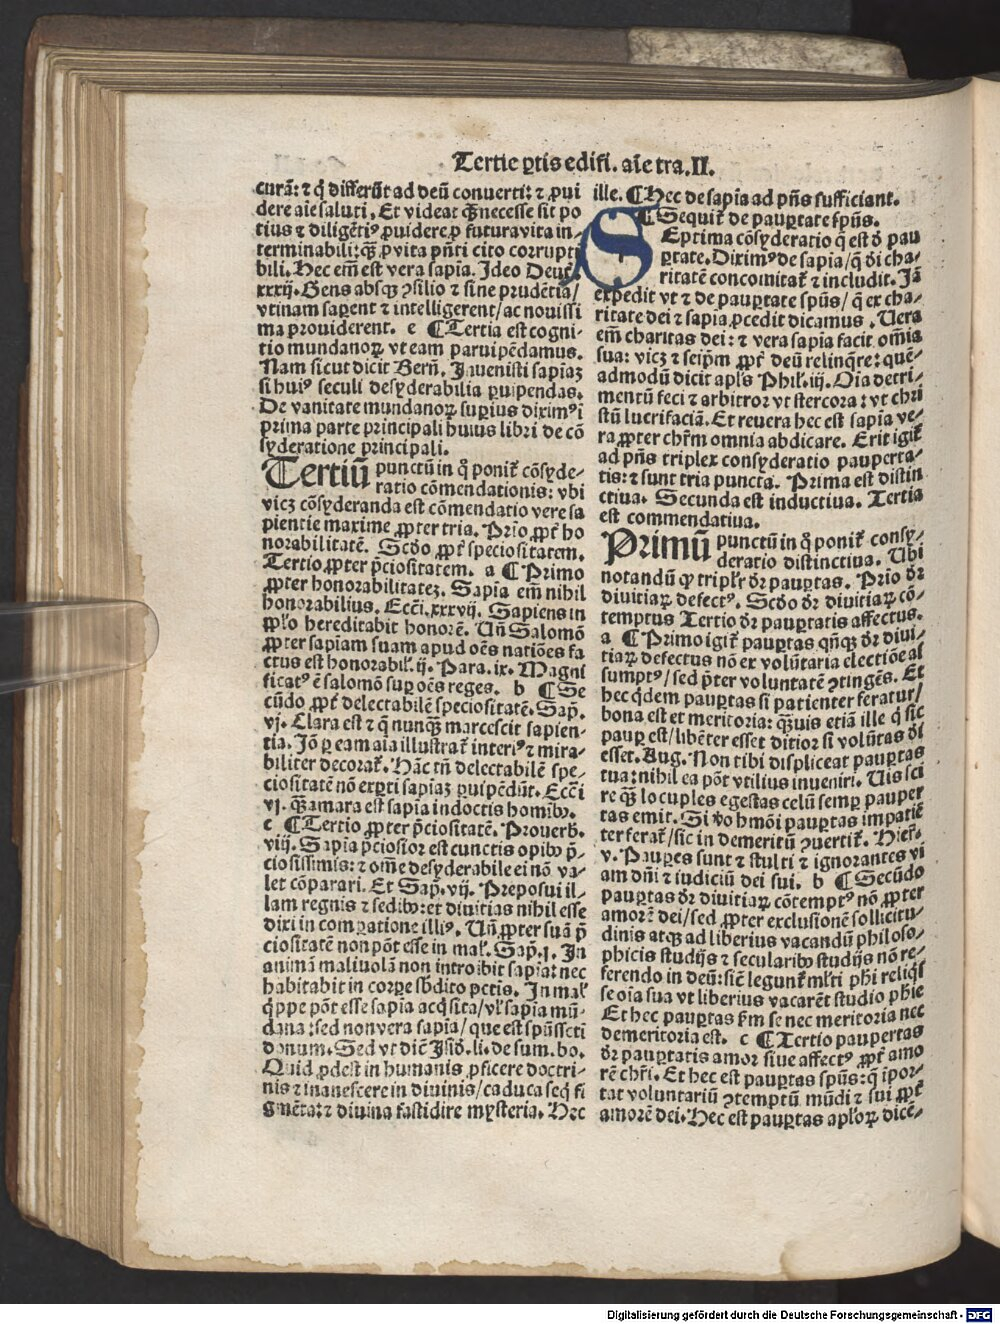 Tertie ꝑtis edifi. aīe tra.II.
curā: ⁊ ꝙ differūt ad deū conuerti: ⁊ ꝓui
dere aīe saluti. Et videat ꝙ̄ necesse sit po
tius ⁊ diligētiꝰ ꝓuidere ꝓ futura vita in-
terminabili: qꝫ̄ ꝓ vita pn̄ti cito corrupti
bili. Hec em̄ est vera sapīa. Ideo Deut̄.
xxxij. Gens absqꝫ ↄsilio ⁊ sine prudētia/
vtinam saꝑent ⁊ intelligerent/ac nouissi
ma prouiderent. e ¶ Tertia est cogni-
tio mundanoꝝ vt eam paruipēdamus.
Nam sicut dicit Berñ. Inuenisti sapīaꝫ
si huiꝰ seculi desyderabilia ꝑuipendas.
De vanitate mundanoꝝ suꝑius diximꝰ ī
prima parte principali huius libri de cō
syderatione principali.
Tertiū punctū in ꝙ̄ ponit̄ cōsyde-
ratio cōmendationis: vbi
vicꝫ cōsyderanda est cōmendatio vere sa
pientie maxime ꝓpter tria. Prīo ꝓpt̄ ho
norabilitatē. Scd̄o ꝓpt̄ speciositatem.
Tertio ꝓpter p̄ciositatem. a ¶ Primo
ꝓpter honorabilitateꝫ. Sapīa em̄ nihil
honorabilius. Ecc̄i.xxxvij. Sapiens in
pp̄lo hereditabit honorē. Vn̄ Salomō
ꝓpter sapīam suam apud oēs natiōes fa
ctus est honorabil̄. ij. Para. ix. Magni
ficatꝰ ē salomō suꝑ oēs reges. b ¶ Se
cūdo ꝓpt̄ delectabilē speciositatē. Sap̄.
vj. Clara est ⁊ q̄ nunqꝫ̄ marcescit sapien-
tia. Iō ꝑ eam aīa illustrat̄ interiꝰ ⁊ mira-
biliter decorat̄. Hāc tn̄ delectabilē spe-
ciositatē nō exꝑti sapīaꝫ ꝑuipēdūt. Ecc̄i
vj. qꝫ̄ amara est sapīa indoctis homibꝰ.
c ¶ Tertio ꝓpter p̄ciositatē. Prouerb.
viij. Sapīa p̄ciosior est cunctis opibꝰ p̄-
ciosissimis: ⁊ om̄e desyderabile ei nō va-
let cōparari. Et Sap̄. vij. Preposui il-
lam regnis ⁊ sedibꝰ: et diuitias nihil esse
dixi in comꝑatione illiꝰ. Vn̄ ꝓpter suā p̄
ciositatē non pōt esse in mal̄. Sap̄.j. In
animā maliuolā non introibit sapīa: nec
habitabit in corꝑe sb̄dito pctis. In mal̄
q̄ppe pōt esse sapīa acq̄sita/vl̄ sapīa mū-
dana: sed non vera sapīa/que est spūs sc̄ti
donum. Sed vt dic̄ Isid̄. li. de sum. bo.
Quid ꝓdest in humanis ꝓficere doctri-
nis ⁊ inanescere in diuinis/caduca seq̄ fi
gmēta: ⁊ diuina fastidire mysteria. Hec
ille. ¶ Hec de sapīa ad pn̄s sufficiant.
¶ Sequit̄ de pauꝑtate spūs.
SEptima cōsyderatio q̄ est d̄ pau
ꝑtate. Diximꝰ de sapīa/q̄ di cha-
ritatē concomitat̄ ⁊ includit. Iā
expedit vt ⁊ de pauꝑtate spūs/ q̄ ex cha-
ritate dei ⁊ sapīa ꝓcedit dicamus. Vera
em̄ charitas dei: ⁊ vera sapīa facit om̄ia
sua: vicꝫ ⁊ seip̄m ꝓpt̄ deū relinq̄re: quē-
admodū dicit apl̄s Phil̄. iij. Oīa detri-
mentū feci ⁊ arbitror vt stercora: vt chri
stū lucrifaciā. Et reuera hec est sapīa ve-
ra ꝓpter chr̄m omnia abdicare. Erit igit̄
ad pn̄s triplex consyderatio pauperta-
tis: ⁊ sunt tria puncta. Prima est distin
ctiua. Secunda est inductiua. Tertia
est commendatiua.
Primū punctū in ꝙ̄ ponit̄ consy-
deratio distinctiua. Vbi
notandū ꝙ tripl̄r dr̄ pauꝑtas. Prīo dr̄
diuitiaꝝ defectꝰ. Scd̄o dr̄ diuitiaꝝ cō-
temptus Tertio dr̄ pauꝑtatis affectus.
a ¶ Primo igit̄ pauꝑtas qn̄qꝫ dr̄ diui-
tiaꝝ defectus nō ex volūtaria electiōe as
sumptꝰ/ sed p̄ter voluntatē ↄtingēs. Et
hec q̄dem pauꝑtas si patienter feratur/
bona est et meritoria: qꝫ̄uis etiā ille q̄ sic
pauꝑ est/libēter esset ditior si volūtas d̄i
esset. Aug. Non tibi displiceat pauꝑtas
tua: nihil ea pōt vtilius inueniri. Vis sci
re qꝫ̄ locuples egestas celū semꝑ pauper
tas emit. Si v̄o hm̄oi pauꝑtas impatiē
ter ferat̄/sic in demeritū ↄuertit̄. Hier̄.
v. Pauꝑes sunt ⁊ stulti ⁊ ignorantes vi
am dn̄i ⁊ iudiciū dei sui. b ¶ Secūdo
pauꝑtas dr̄ diuitiaꝝ cōtemptꝰ nō ꝓpter
amorē dei/sed ꝓpter exclusionē sollicitu-
dinis atqꝫ ad liberius vacandū philoso-
phicis studijs ⁊ secularibꝰ studijs nō re-
ferendo in deū: sic̄ legunt̄ ml̄ti phi reliq̄s
se oīa sua vt liberius vacarēt studio phie
Et hec pauꝑtas fm̄ se nec meritoria nec
demeritoria est. c ¶ Tertio paupertas
dr̄ pauꝑtatis amor siue affectꝰ ꝓpt̄ amo
rē chr̄i. Et hec est pauꝑtas spūs: q̄ īpor-
tat voluntariū ↄtemptū mūdi ⁊ sui ꝓpt̄
amorē dei. Hec est pauꝑtas apl̄oꝝ dicē-
Digitalisierung gefördert durch die Deutsche Forschungsgemeinschaft - DFG